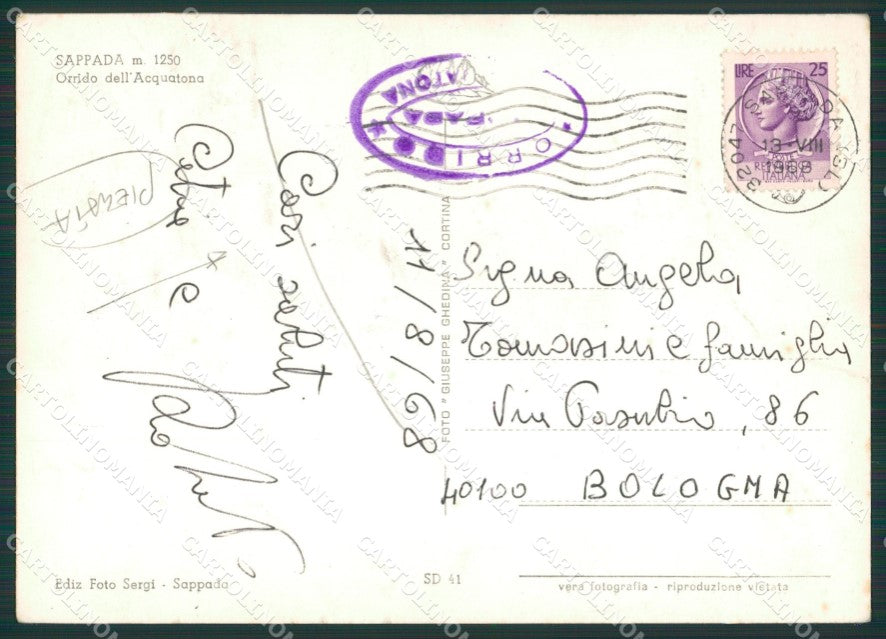 SAPPADA m. 1250
Orrido dell'Acquatona
ORRIDO
ACQUATONA
SAPPADA
LIRE 25
POSTE
REPUBBLICA
ITALIANA
32047 SAPPADA (BL)
13-VIII
1968
Cari saluti
e
11/8/68
PIERSTA
Sigra Angela
Tomasini e famiglia
Via Pasubio, 86
40100 BOLOGNA
FOTO "GIUSEPPE GHEDINA" CORTINA
Ediz Foto Sergi - Sappada
SD 41
vera fotografia - riproduzione vietata
CARTOLINOMANIA